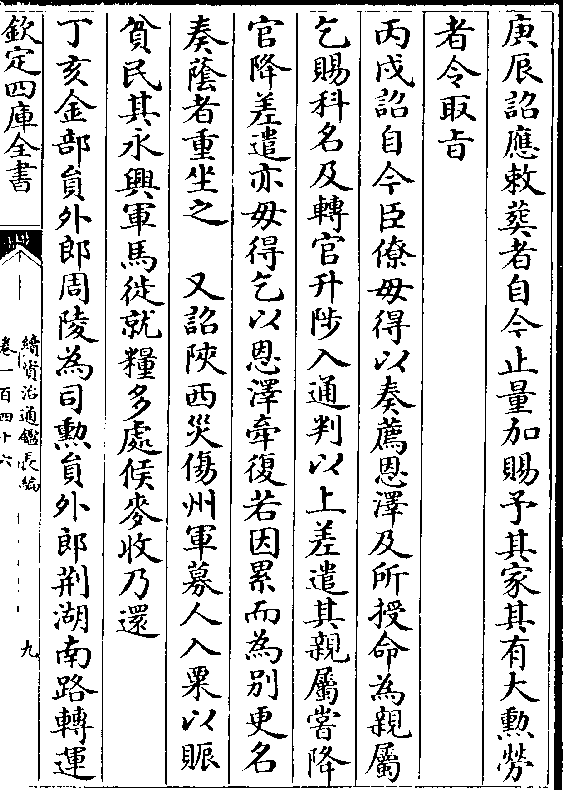 庚辰詔應敕葬者自今止量加賜予其家其有大勲勞
者令取旨
丙戌詔自今臣僚毋得以奏薦恩澤及所授命為親屬
乞賜科名及轉官升陟入通判以上差遣其親屬嘗降
官降差遣亦毋得乞以恩澤牽復若因累而為别更名
奏蔭者重坐之　又詔陜西災傷州軍募人入粟以賑
貧民其永興軍馬徙就糧多處候麥收乃還
丁亥金部員外郎周陵為司勲員外郎荆湖南路轉運
欽定四庫全書
續資治通鑑長編
卷一百四十六
九